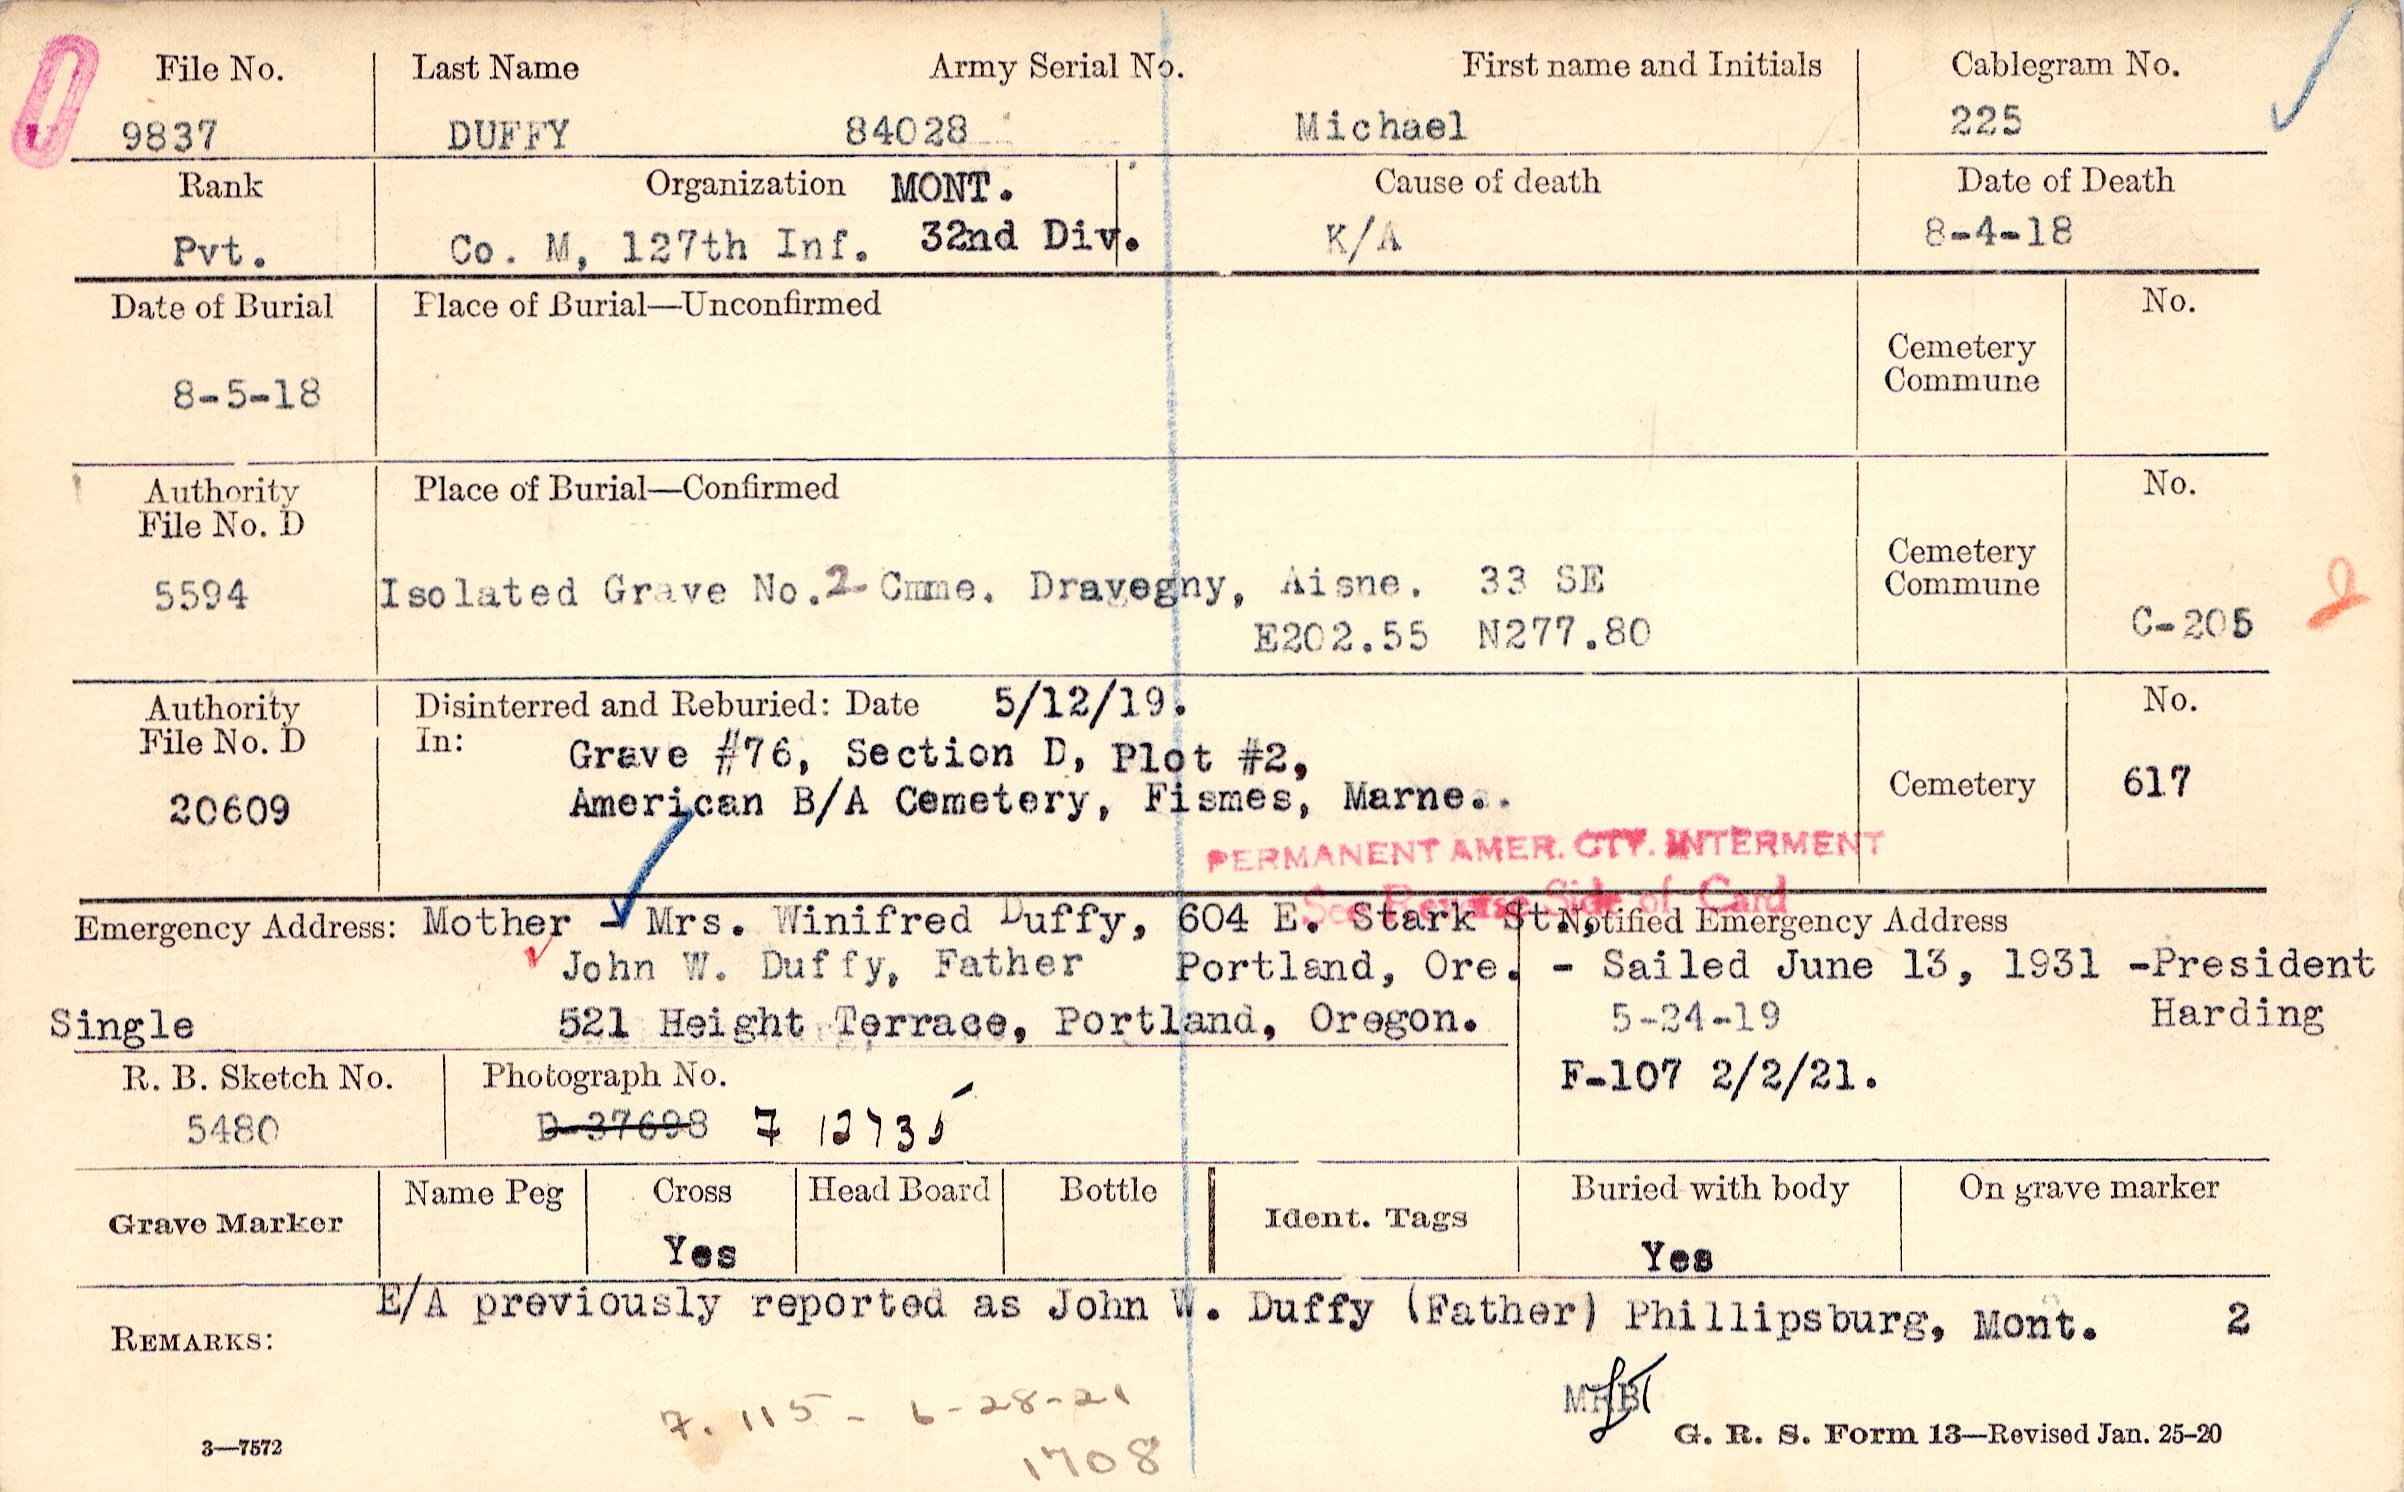 File No. Last Name Army Serial No. First name and Initials Cablegram No.
9837 DUFFY 84028 Michael 225
Rank Organization MONT. Cause of death Date of Death
Pvt. Co. M, 127th Inf. 32nd Div. K/A 8-4-18
Date of Burial Place of Burial—Unconfirmed No.
Cemetery
Commune
8-5-18
Authority Place of Burial—Confirmed No.
File No. D
Cemetery
Commune
5594 Isolated Grave No. 2 Cmme. Dravegny, Aisne. 33 SE
E202.55 N277.80 C-205
Authority Disinterred and Reburied: Date 5/12/19. No.
File No. D In: Grave #76, Section D, Plot #2,
20609 American B/A Cemetery, Fismes, Marne. Cemetery 617
PERMANENT AMER. CTY. INTERMENT
See Reverse Side of Card
Emergency Address: Mother - Mrs. Winifred Duffy, 604 E. Stark St., Notified Emergency Address
John W. Duffy, Father Portland, Ore. - Sailed June 13, 1931 -President
Single 521 Height Terrace, Portland, Oregon. 5-24-19 Harding
R. B. Sketch No. Photograph No. F-107 2/2/21.
5480 D-37698 7 12735
Grave Marker Name Peg Cross Head Board Bottle Ident. Tags Buried with body On grave marker
Yes Yes
E/A previously reported as John W. Duffy (Father) Phillipsburg, Mont. 2
REMARKS:
7. 115 - 6-28-21
1708
3—7572 G. R. S. Form 13—Revised Jan. 25-20